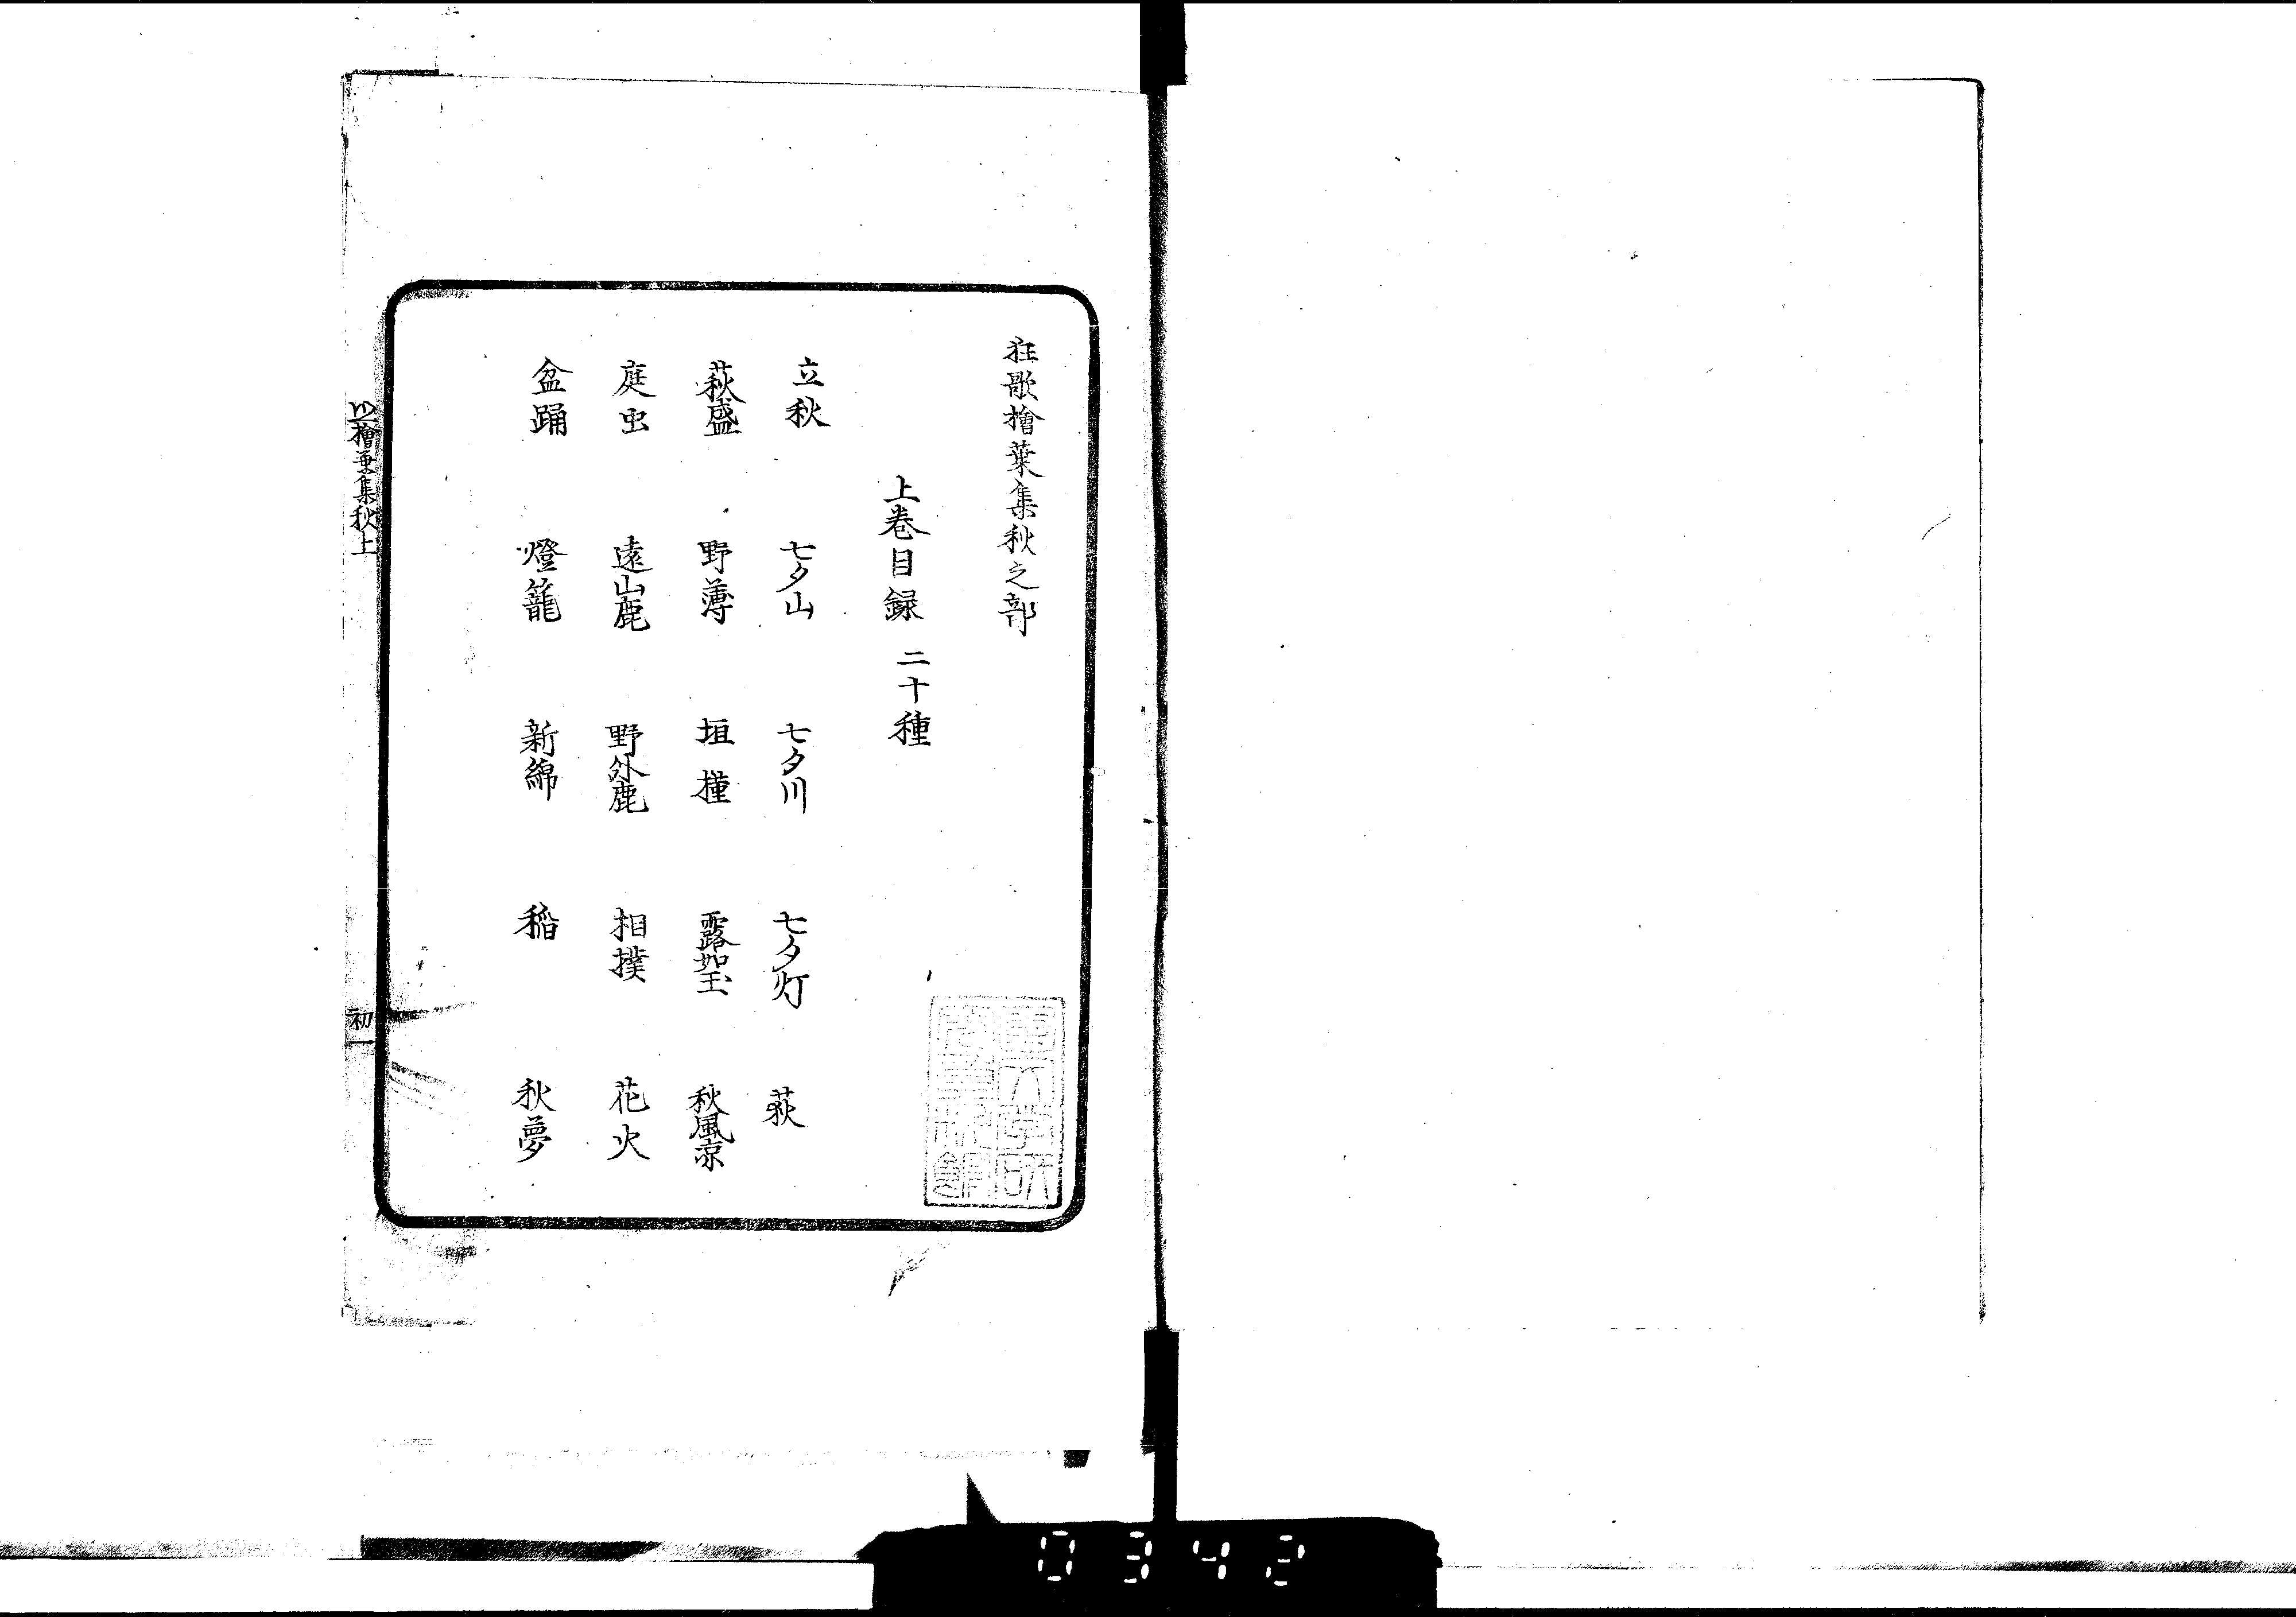 狂歌檜葉集秋之部
上巻目録 二十種
立秋 七夕山 七夕川 七夕灯 荻
萩盛 野薄 垣槿 露如玉 秋風凉
庭虫 遠山鹿 野外鹿 相撲 花火
盆踊 燈籠 新綿 稲 秋夢
檜葉集秋上 初一
0342